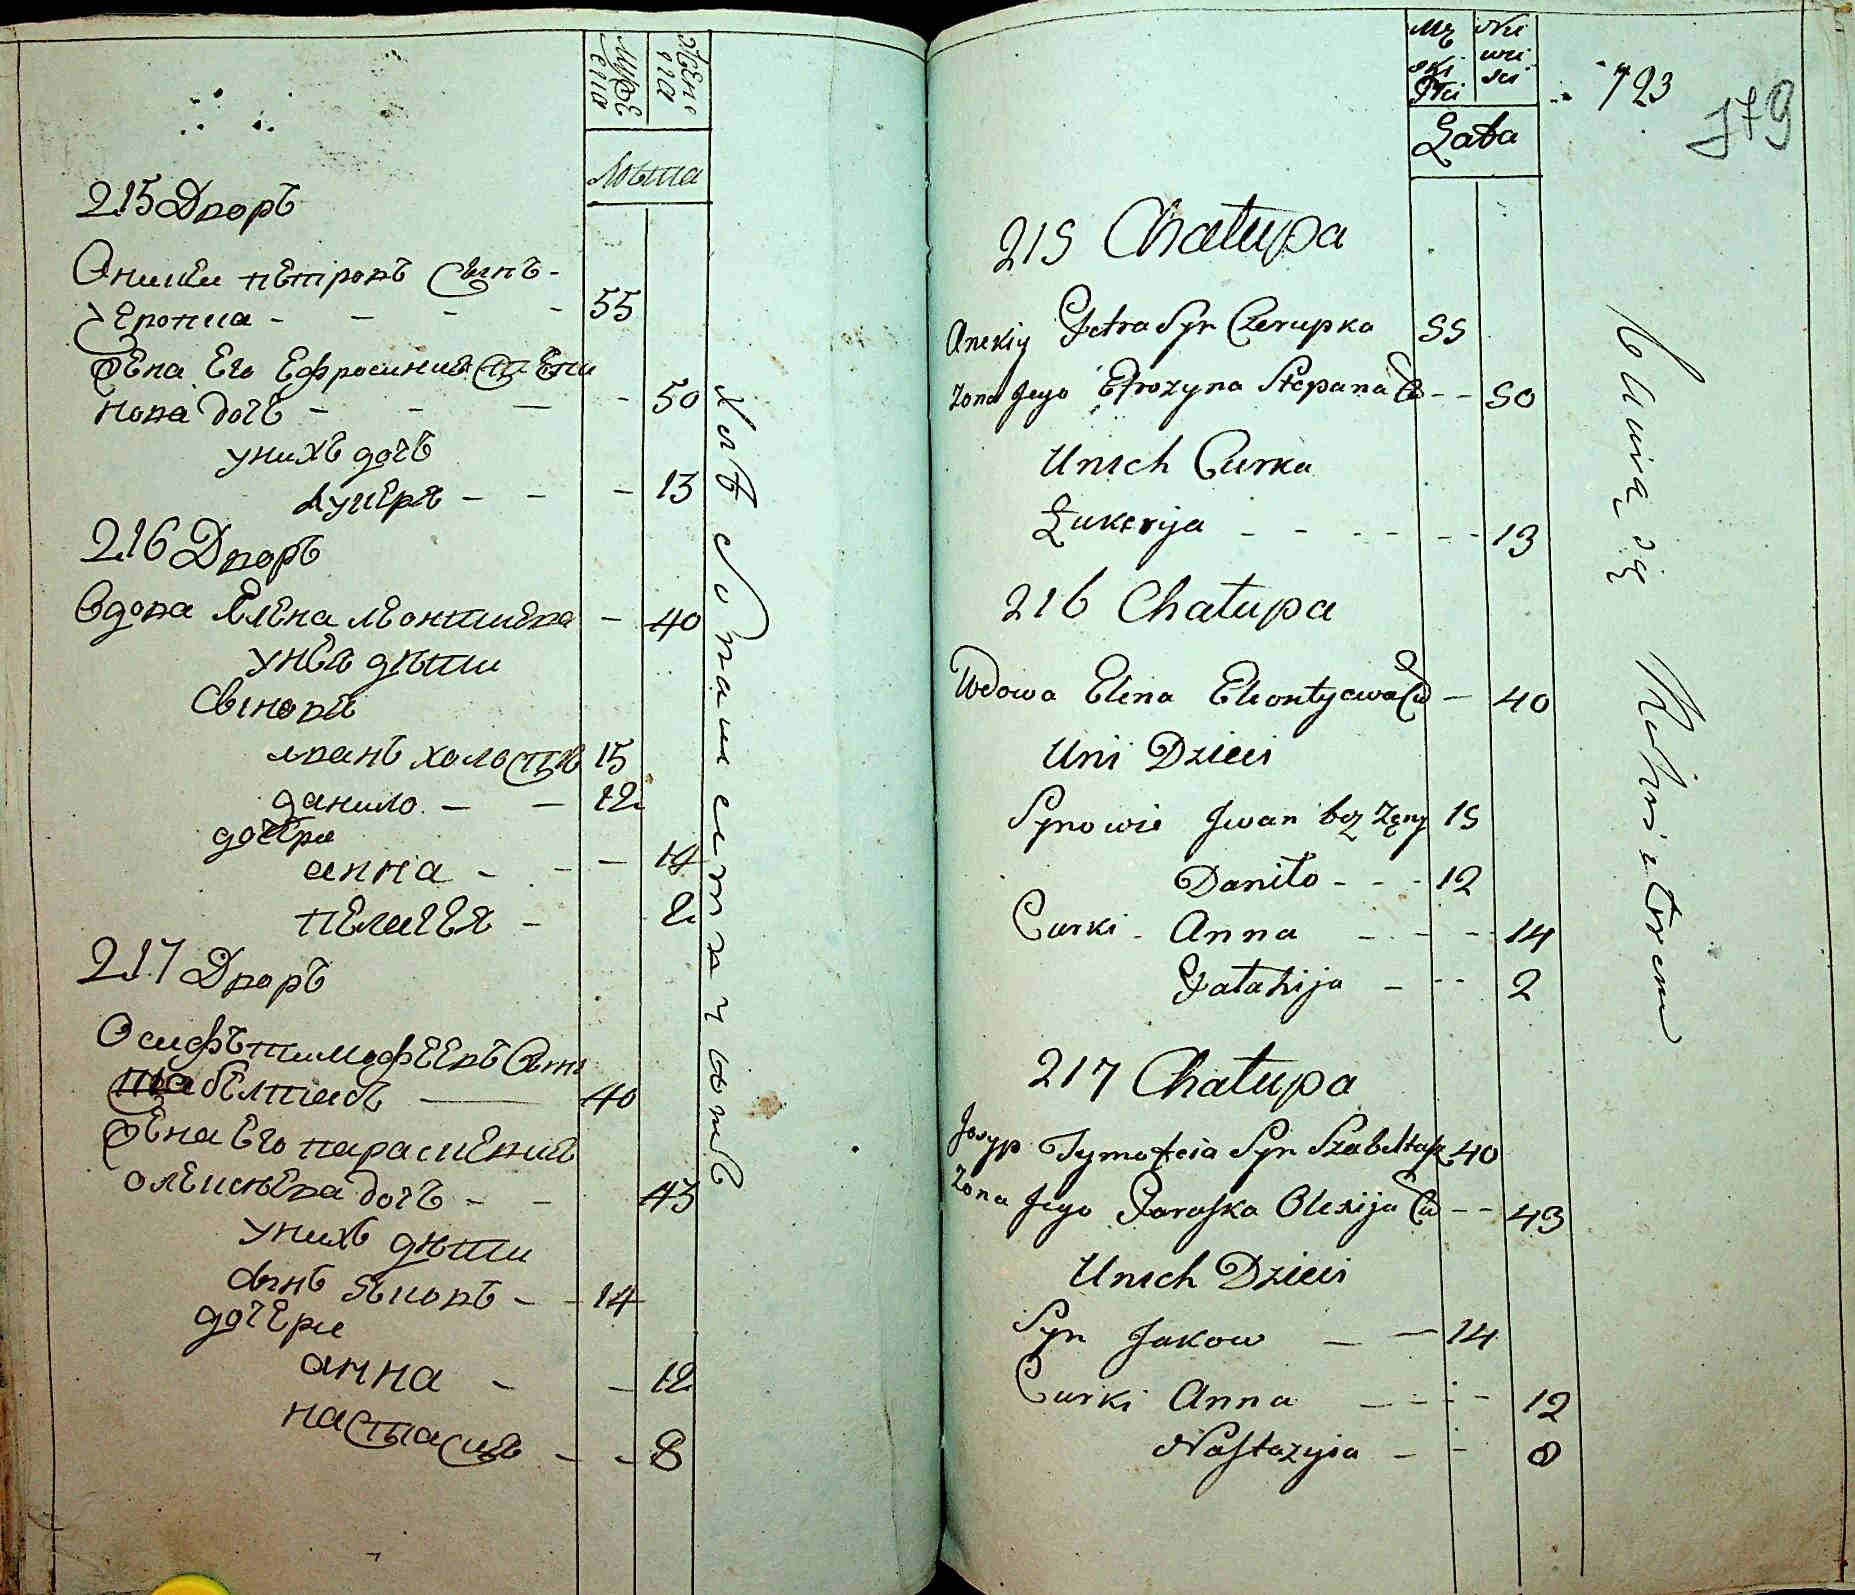 Мужеска
Женска
Лѣта
215 Дворъ
Оникій петровъ Сынъ -
Черопка - - - - 55
жена Его Ефросиниѧ Степа
нова дочь - - - - 50
унихъ дочь
лукерѧ - - - 13
216 Дворъ
Вдова Елена леонтиева - 40
унеѣ дѣти
Сыновѧ
иванъ холостъ 15
данило - - 12
дочери
анна - - - 14
пелагея - 2
217 Дворъ
Осифъ тимофѣевъ Сынъ
шабелташъ 40
жена Его параскевия
олексѣева дочь - - 43
унихъ дѣти
Сынъ яковъ - - 14
дочери
анна - - 12
настасия - - 8
Męskiej Płci
Niewieści
Lata
123
179
215 Chałupa
Onekiy Petra Syn Czerupka 55
Żona Jego Efrozyna Stepana C - - 50
Unich Curka
Łukeryja - - - - - - 13
216 Chałupa
Wdowa Elena Eleontyewa C - 40
Uni Dzieci
Synowie Jwan bez Żeny 15
Daniło - - - 12
Curki - Anna - - - - 14
Pałahija - - - 2
217 Chałupa
Josyp Tymofeia Syn Szabeltasz 40
Żona Jego Paraska Olexija C - - 43
Unich Dzieci
Syn Jakow - - 14
Curki Anna - - - - 12
Nastazyia - - 8